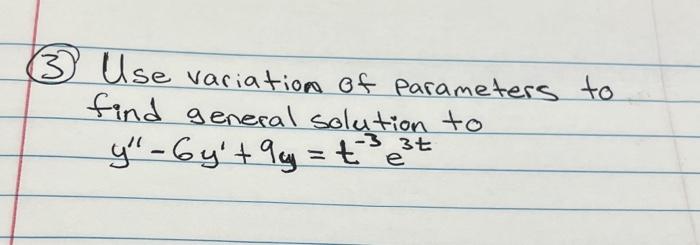 ③ Use variation of parameters to
find general solution to
y'' - 6y' + 9y = t⁻³ e³ᵗ